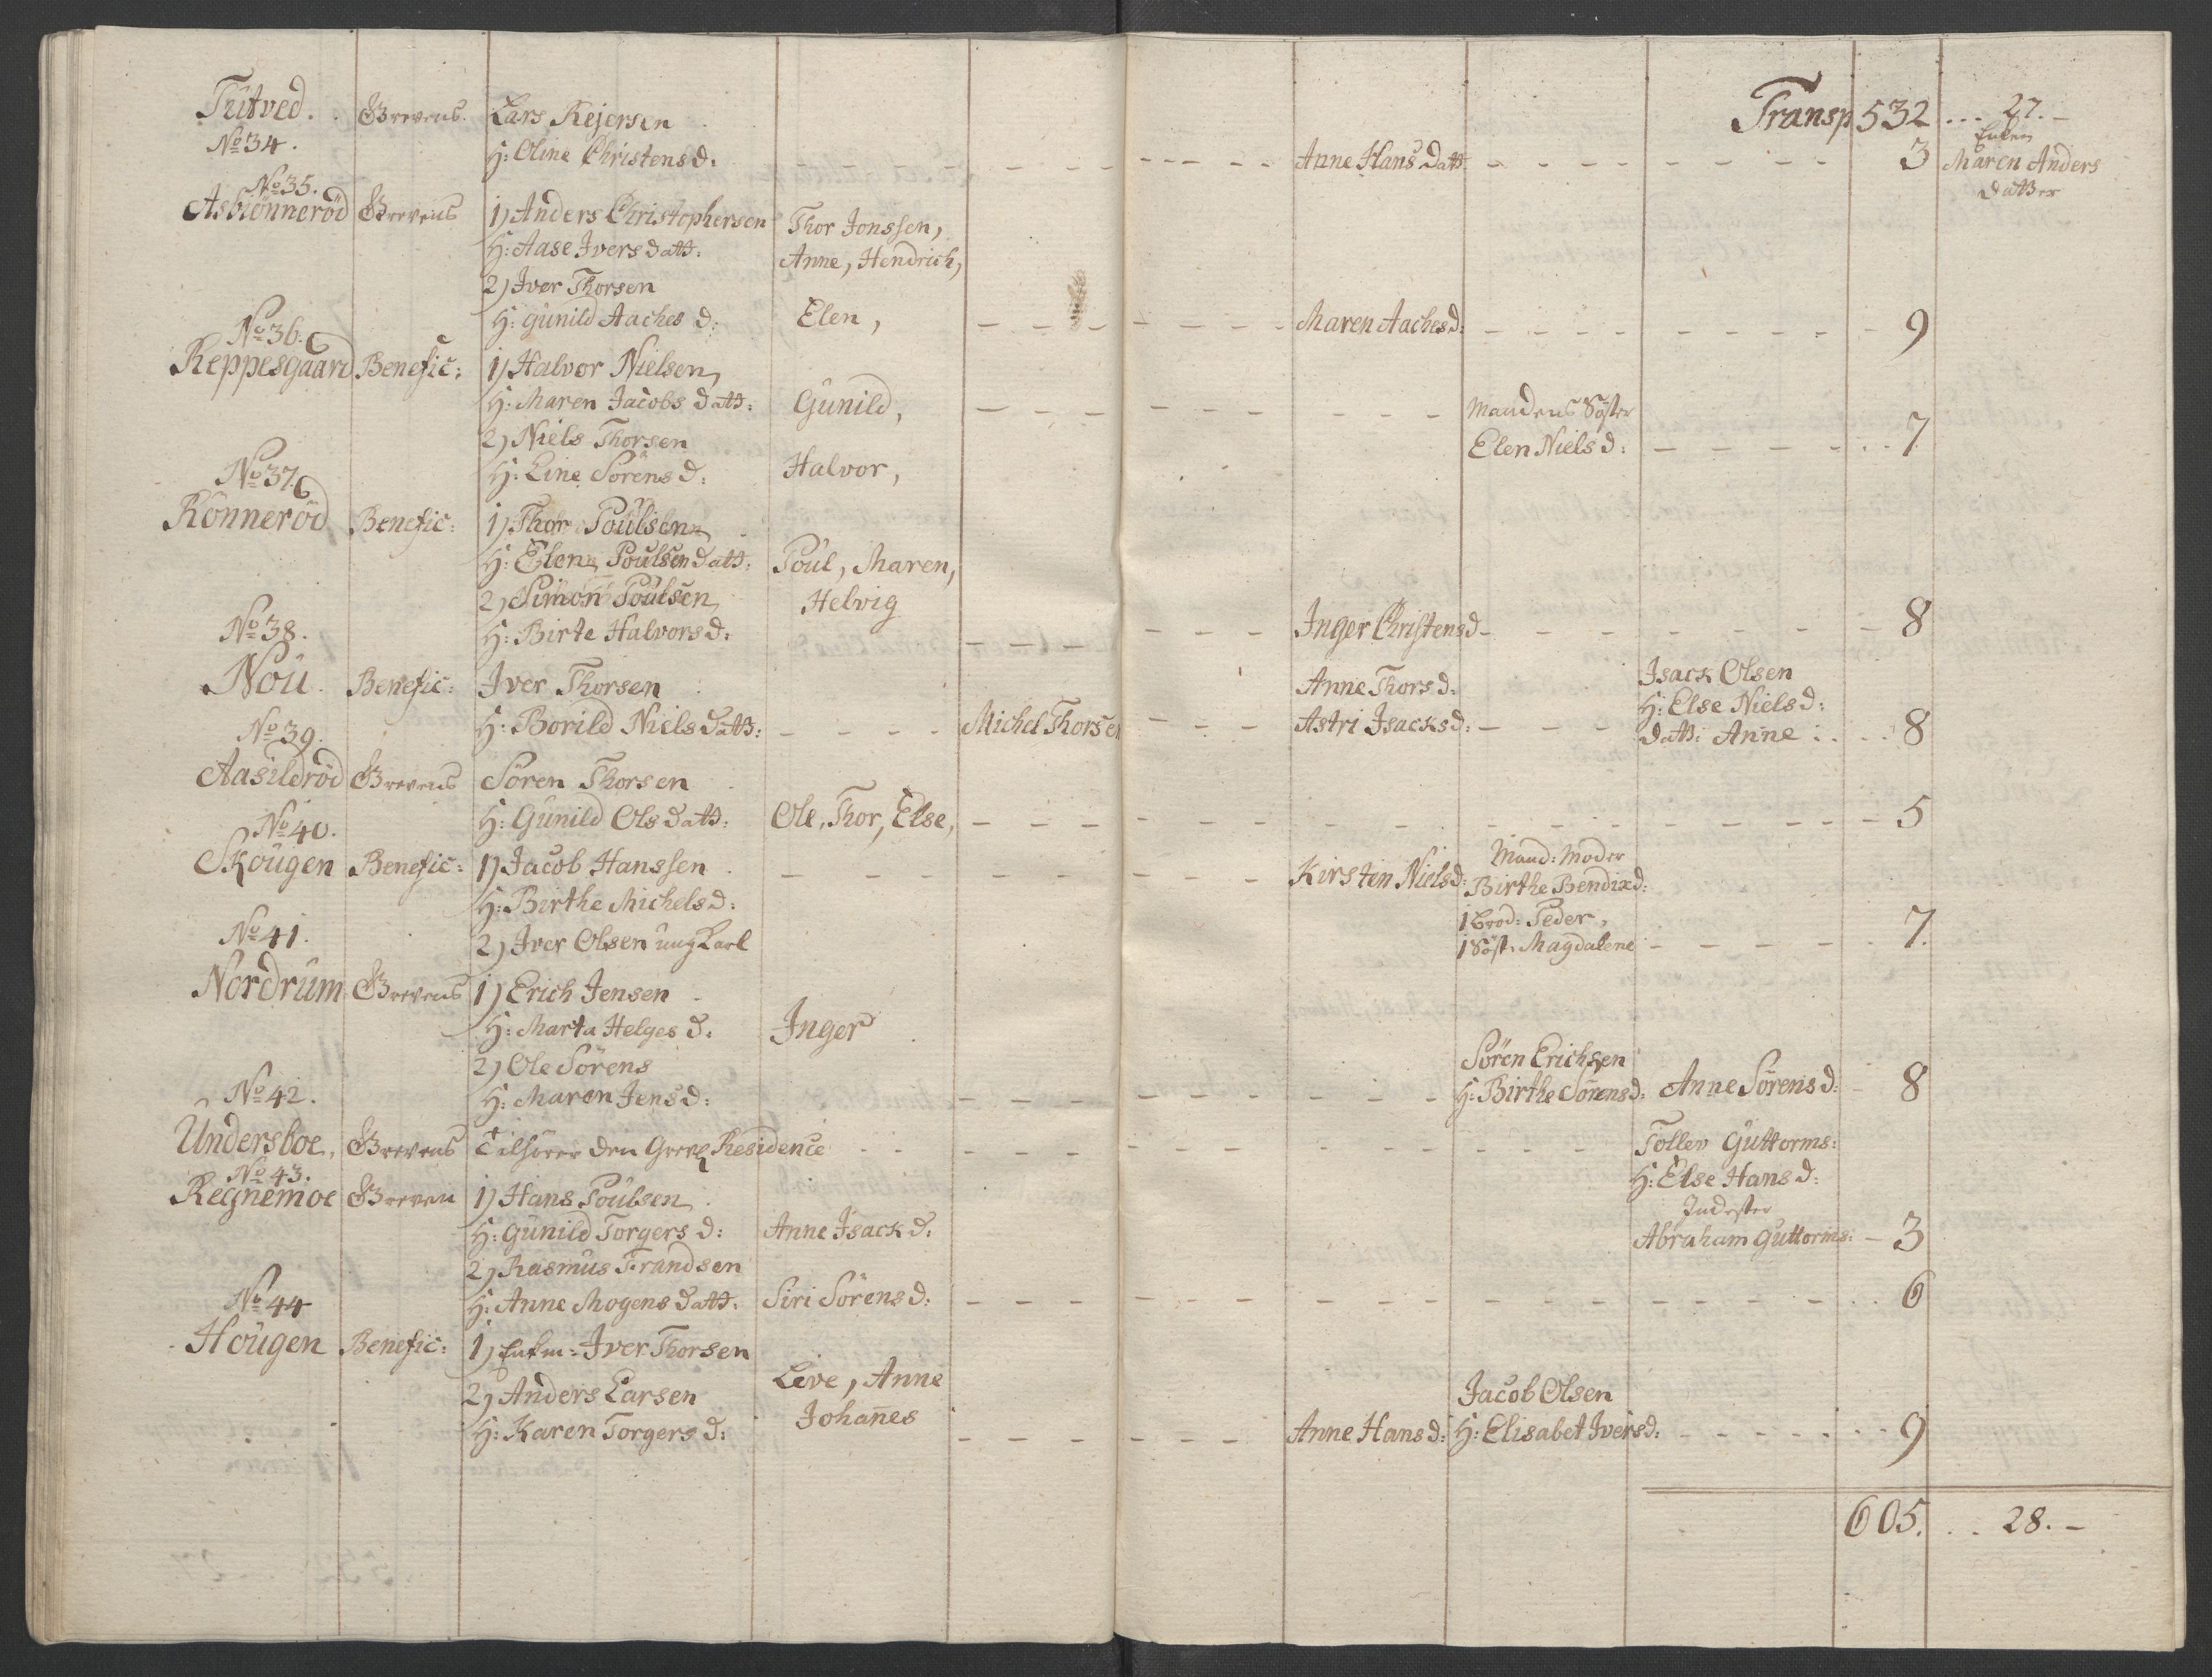 Transp 532 ... 27. -
Tutved. Grevens. Lars Rejersen
Enken
No 34. H: Oline Christensd: - - - Anne Hans Datt - - - 3 Maren Anders
Datter
No 35.
Asbiönneröd Grevens 1) Anders Christophersen Thor Jonssen,
H: Aase Ivers Datt: Anne, Hendrich,
2) Iver Thorsen
H: Gunild Aaches d: Elen, - - - Maren Aachesd: - - - 9
No 36.
Reppesgaard Benefic: 1) Halvor Nielsen
H: Maren Jacobs Datt: Gunild, - - - Mandens Söster
2) Niels Thorsen Elen Nielsd: - - - 7
H: Line Sörensd: Halvor,
No 37.
Rönneröd Benefic: 1) Thor Poulsen
H: Elen Poulsen Datt: Poul, Maren,
2) Simon Poulsen Helvig
H: Birte Halvorsd: - - - Inger Christensd - - - 8
No 38.
Nou. Benefic: Iver Thorsen Anne Thorsd: Isack Olsen
H: Else Nielsd:
H: Borild Niels Datt: - - - Michel Thorsen - - - Astri Isacksd: - - - Datt: Anne : . . . 8
No 39.
Aasilderöd Grevens Sören Thorsen
H: Gunild Ols Datt: Ole, Thor, Else, - - - 5
No 40.
Skougen Benefic: 1) Jacob Hanssen - - - Kirsten Nielsd: Mand: Moder
H: Birthe Michelsd: Birthe Bendixd:
1 Brod: Peder,
2) Iver Olsen ung Karl 1 Söst: Magdalene - - - 7.
No 41.
Nordrum Grevens 1) Erich Jensen
H: Marta Helges d: Inger
2) Ole Sörens Sören Erichsen
H: Maren Jensd: - - - H: Birthe Sörensd: Anne Sörensd: - 8
No 42.
Undersboe, Grevens Tilhörer den Grevl Residence - - - Tollev Guttorms:
H: Else Hansd:
Inderster
Abraham Guttorms: - 3
No 43.
Regnemoe Greven 1) Hans Poulsen
H: Gunild Torgers d: Anne Isack d:
2) Rasmus Frandsen
H: Anne Mogens Datt: Siri Sörensd: - - - 6
No 44
Hougen Benefic: 1) Enkm: Iver Thorsen
2) Anders Larsen Live, Anne Jacob Olsen
H: Karen Torgers d: Johanes - - - Anne Hansd: H: Elisabet Iversd: - - - 9
605. . . 28. -